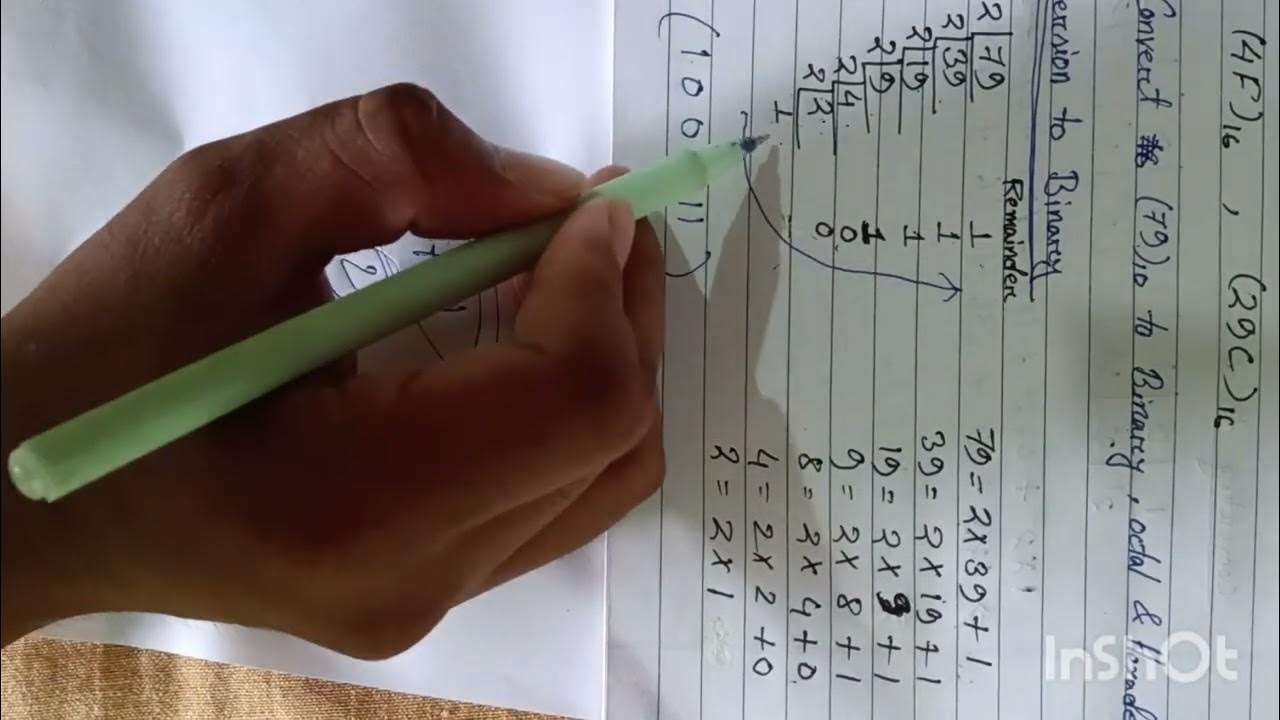 (4F)₁₆ , (29C)₁₆
Convert (79)₁₀ to Binary, octal &
to Binary
Remainder
2 79 1 79 = 2 x 39 + 1
2 39 1 39 = 2 x 19 + 1
2 19 1 19 = 2 x 9 + 1
2 9 1 9 = 2 x 8 + 1
2 4 0 8 = 2 x 4 + 0
2 2 0 4 = 2 x 2 + 0
1 2 = 2 x 1
(1 0 0 11)
InShot